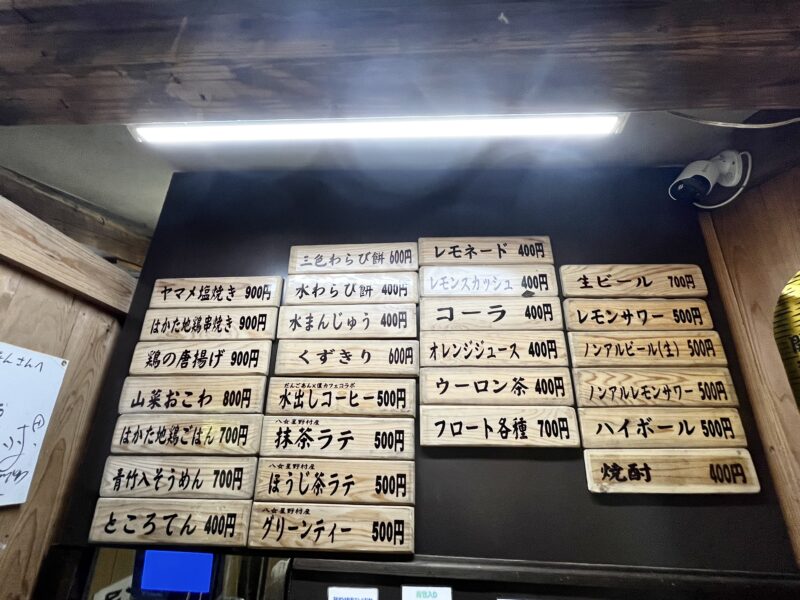 ヤマメ塩焼き 900円
はかた地鶏串焼き 900円
鶏の唐揚げ 900円
山菜おこわ 800円
はかた地鶏ごはん 700円
青竹入そうめん 700円
ところてん 400円
三色わらび餅 600円
水わらび餅 400円
水まんじゅう 400円
くずきり 600円
だんごあん×僕カフェコラボ
水出しコーヒー 500円
八女星野村産
抹茶ラテ 500円
八女星野村産
ほうじ茶ラテ 500円
八女星野村産
グリーンティー 500円
レモネード 400円
レモンスカッシュ 400円
コーラ 400円
オレンジジュース 400円
ウーロン茶 400円
フロート各種 700円
生ビール 700円
レモンサワー 500円
ノンアルビール(生) 500円
ノンアルレモンサワー 500円
ハイボール 500円
焼酎 400円